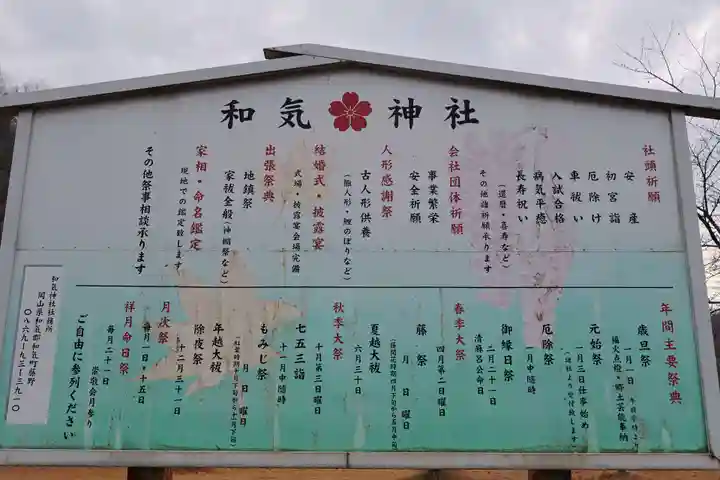 和気神社
社頭祈願
安産
初宮詣
厄除け
車祓い
入試合格
病気平癒
長寿祝い
(還暦・喜寿など)
その他諸祈願承ります
会社団体祈願
事業繁栄
安全祈願
人形感謝祭
古人形供養
(雛人形・鯉のぼりなど)
結婚式・披露宴
式場・披露宴会場完備
出張祭典
地鎮祭
家祓全般(神棚祭など)
家相・命名鑑定
現地での鑑定致します
その他祭事相談承ります
年間主要祭典
歳旦祭
一月一日 午前零時より
福火点燈・郷土芸能奉納
元始祭
一月三日仕事始め
(一般社より受付致します)
厄除祭
一月中随時
御縁日祭
二月二十一日
清麻呂公命日
春季大祭
四月第二日曜日
藤祭
月 日 曜日
(藤開花時期四月下旬から五月中旬)
夏越大祓
六月三十日
秋季大祭
十月第三日曜日
七五三詣
十一月中随時
もみじ祭
月 日 曜日
(紅葉時期十月下旬から十一月下旬)
年越大祓
除夜祭
十二月三十一日
月次祭
毎月一日・十五日
祥月命日祭
毎月二十一日
崇敬会月参り
ご自由に参列ください
和気神社社務所
岡山県和気郡和気町藤野
〇八六九-九三-三九一〇